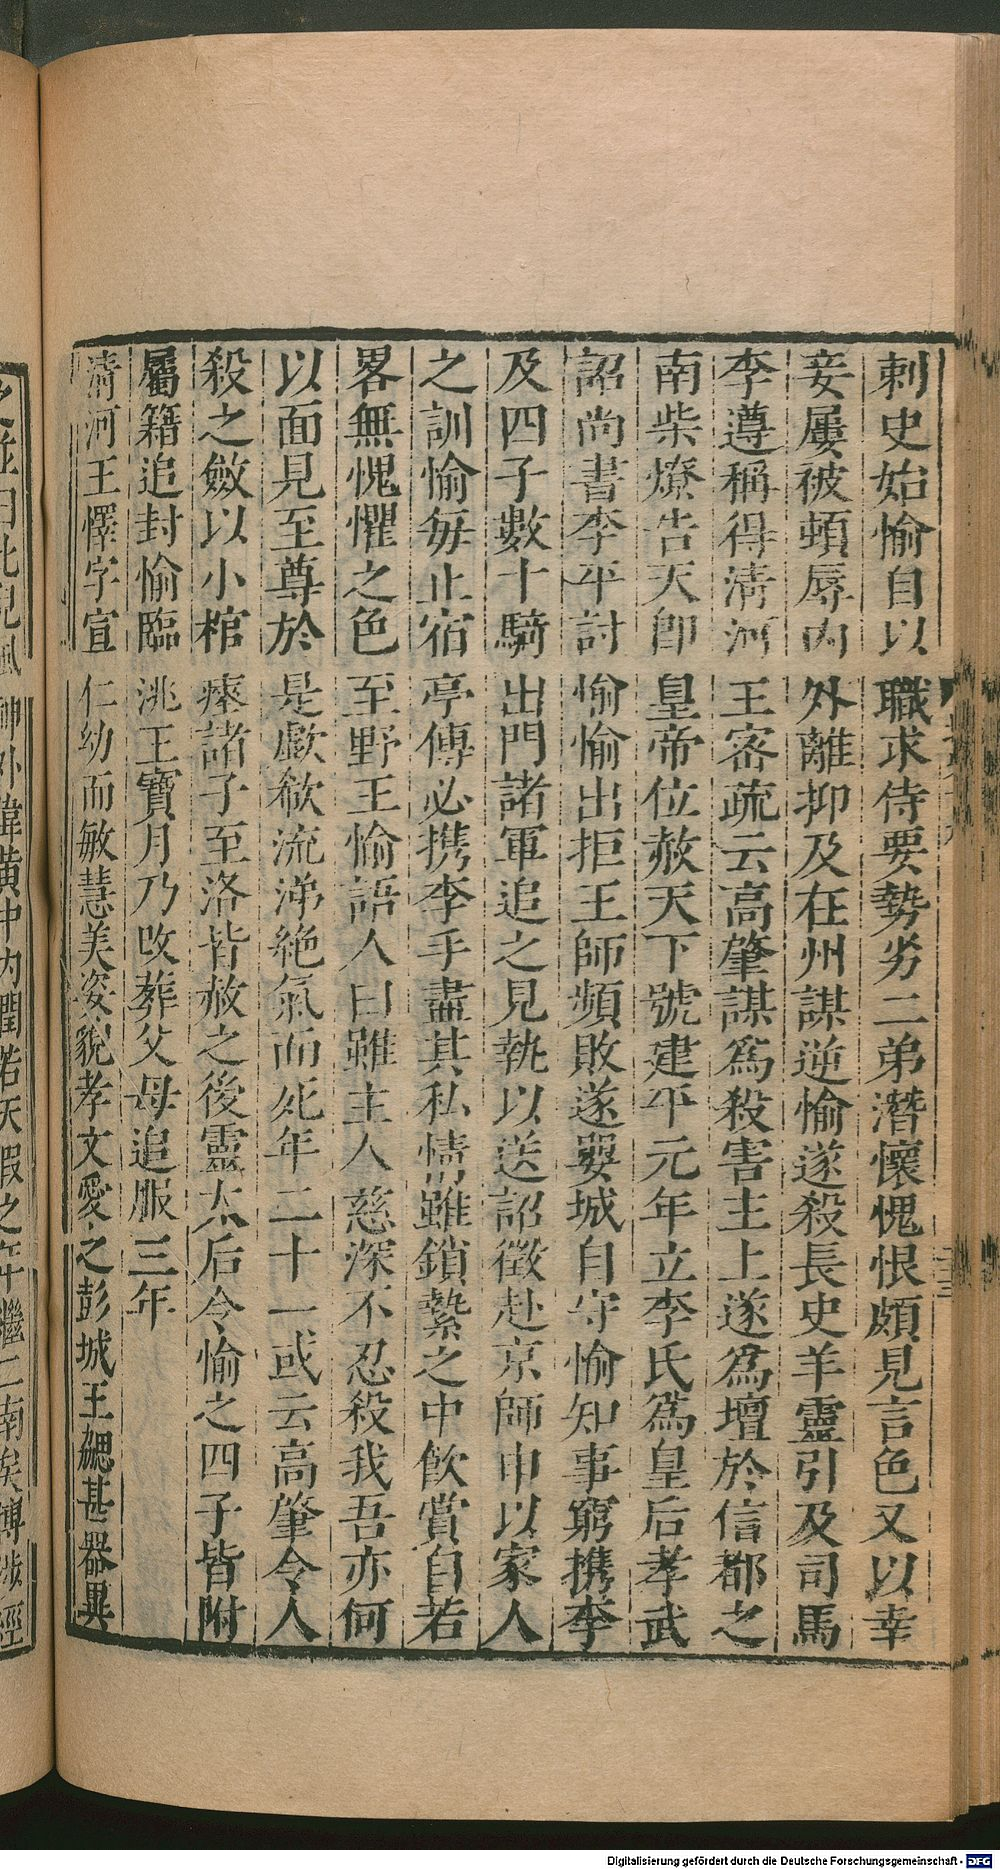 刺史始愉自以職求侍要勢劣二弟潛懷愧恨頗見言色又以幸
妾屢被頓辱內外離抑及在州謀逆愉遂殺長史羊靈引及司馬
李遵稱得清河王密疏云高肇謀爲殺害主上遂爲壇於信都之
南柴燎告天即皇帝位赦天下號建平元年立李氏爲皇后孝武
詔尚書李平討愉愉出拒王師頻敗遂嬰城自守愉知事窮携李
及四子數十騎出門諸軍追之見執以送詔徵赴京師申以家人
之訓愉每止宿亭傳必携李手盡其私情雖鎖縶之中飲賞自若
畧無愧懼之色至野王愉語人曰雖主人慈深不忍殺我吾亦何
以面見至尊於是歔欷流涕絶氣而死年二十一或云高肇令人
殺之斂以小棺瘞諸子至洛皆赦之後靈太后令愉之四子皆附
屬籍追封愉臨洮王寶月乃改葬父母追服三年
清河王懌字宣仁幼而敏慧美姿貌孝文愛之彭城王勰甚器異
神外偉黃中內潤若天假之年繼二南矣博涉經
Digitalisierung gefördert durch die Deutsche Forschungsgemeinschaft - DFG